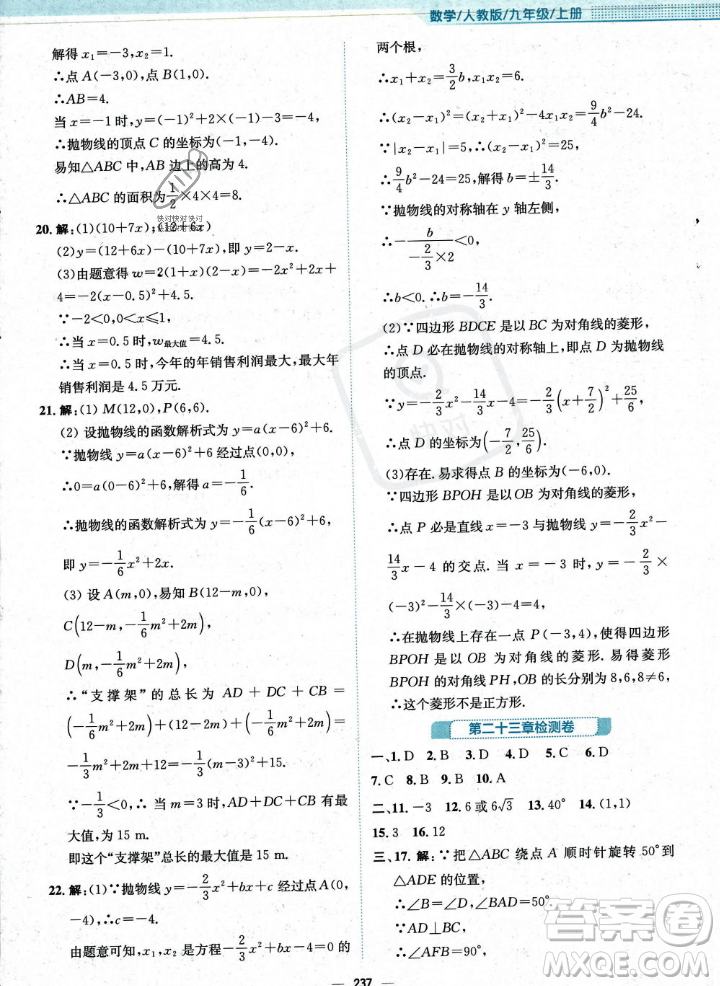 数学/人教版/九年级/上册
解得 x₁=-3,x₂=1.
∴点 A(-3,0),点 B(1,0).
∴AB=4.
当 x=-1 时,y=(-1)²+2×(-1)-3=-4,
∴抛物线的顶点 C 的坐标为(-1,-4).
易知△ABC 中,AB 边上的高为 4.
∴△ABC 的面积为1/2×4×4=8.
20. 解:(1)(10+7x);(12+6x)
(2)y=(12+6x)-(10+7x),即 y=2-x.
(3)由题意得 w=2(1+x)(2-x)=-2x²+2x
+4=-2(x-0.5)²+4.5.
∵-2<0,0<x≤1,
∴当 x=0.5 时,w最大值=4.5.
∴当 x=0.5 时,今年的年销售利润最大,最大年
销售利润是 4.5 万元.
21. 解:(1) M(12,0),P(6,6).
(2) 设抛物线的函数解析式为 y=a(x-6)²+6.
∵抛物线 y=a(x-6)²+6 经过点(0,0),
∴0=a(0-6)²+6,解得 a=-1/6.
∴抛物线的函数解析式为 y=-1/6(x-6)²+6,
即 y=-1/6x²+2x.
(3) 设 A(m,0),易知 B(12-m,0),
C(12-m,-1/6m²+2m),
D(m,-1/6m²+2m).
∴“支撑架”的总长为 AD + DC + CB =
(-1/6m²+2m)+(12-2m)+(-1/6m²+2m)=
-1/3m²+2m+12=-1/3(m-3)²+15.
∵-1/3<0,∴当 m=3 时,AD+DC+CB 有最
大值,为 15 m.
即这个“支撑架”总长的最大值是 15 m.
22. 解:(1)∵抛物线 y=-2/3x²+bx+c 经过点A(0,
-4),∴c=-4.
由题意可知,x₁,x₂ 是方程-2/3x²+bx-4=0 的
两个根,
∴x₁+x₂=3/2b,x₁x₂=6.
∴(x₂-x₁)²=(x₂+x₁)²-4x₁x₂=9/4b²-24.
∵|x₂-x₁|=5,∴(x₂-x₁)²=25.
∴9/4b²-24=25,解得 b=±14/3.
∵抛物线的对称轴在 y 轴左侧,
∴-b/(-2/3×2)<0,
∴b<0.∴b=-14/3.
(2)∵四边形 BDCE 是以 BC 为对角线的菱形,
∴点 D 必在抛物线的对称轴上,即点 D 为抛物
线的顶点.
∵y=-2/3x²-14/3x-4=-2/3(x+7/2)²+25/6,
∴点 D 的坐标为(-7/2,25/6).
(3)存在. 易求得点 B 的坐标为(-6,0).
∵四边形 BPOH 是以 OB 为对角线的菱形,
∴点 P 必是直线 x=-3 与抛物线 y=-2/3x²-
14/3x-4 的交点. 当 x=-3 时,y=-2/3×
(-3)²-14/3×(-3)-4=4,
∴在抛物线上存在一点 P(-3,4),使得四边形
BPOH 是以 OB 为对角线的菱形. ∵四边形
BPOH 的对角线 OB,PH 的长分别为 8,6,8≠6
∴这个菱形不是正方形.
第二十三章检测卷
一、1. D 2. B 3. D 4. D 5. C 6. D
7. C 8. B 9. B 10. A
二、11. -3 12. 6或6√3 13. 40° 14. (1,1)
15. 3 16. 12
三、17. 解:∵把△ABC 绕点 A 顺时针旋转 50°到
△ADE 的位置,
∴∠B=∠D,∠BAD=50°.
∵AB⊥DE,
∴∠AFB=90°,
237
快对
答案卷